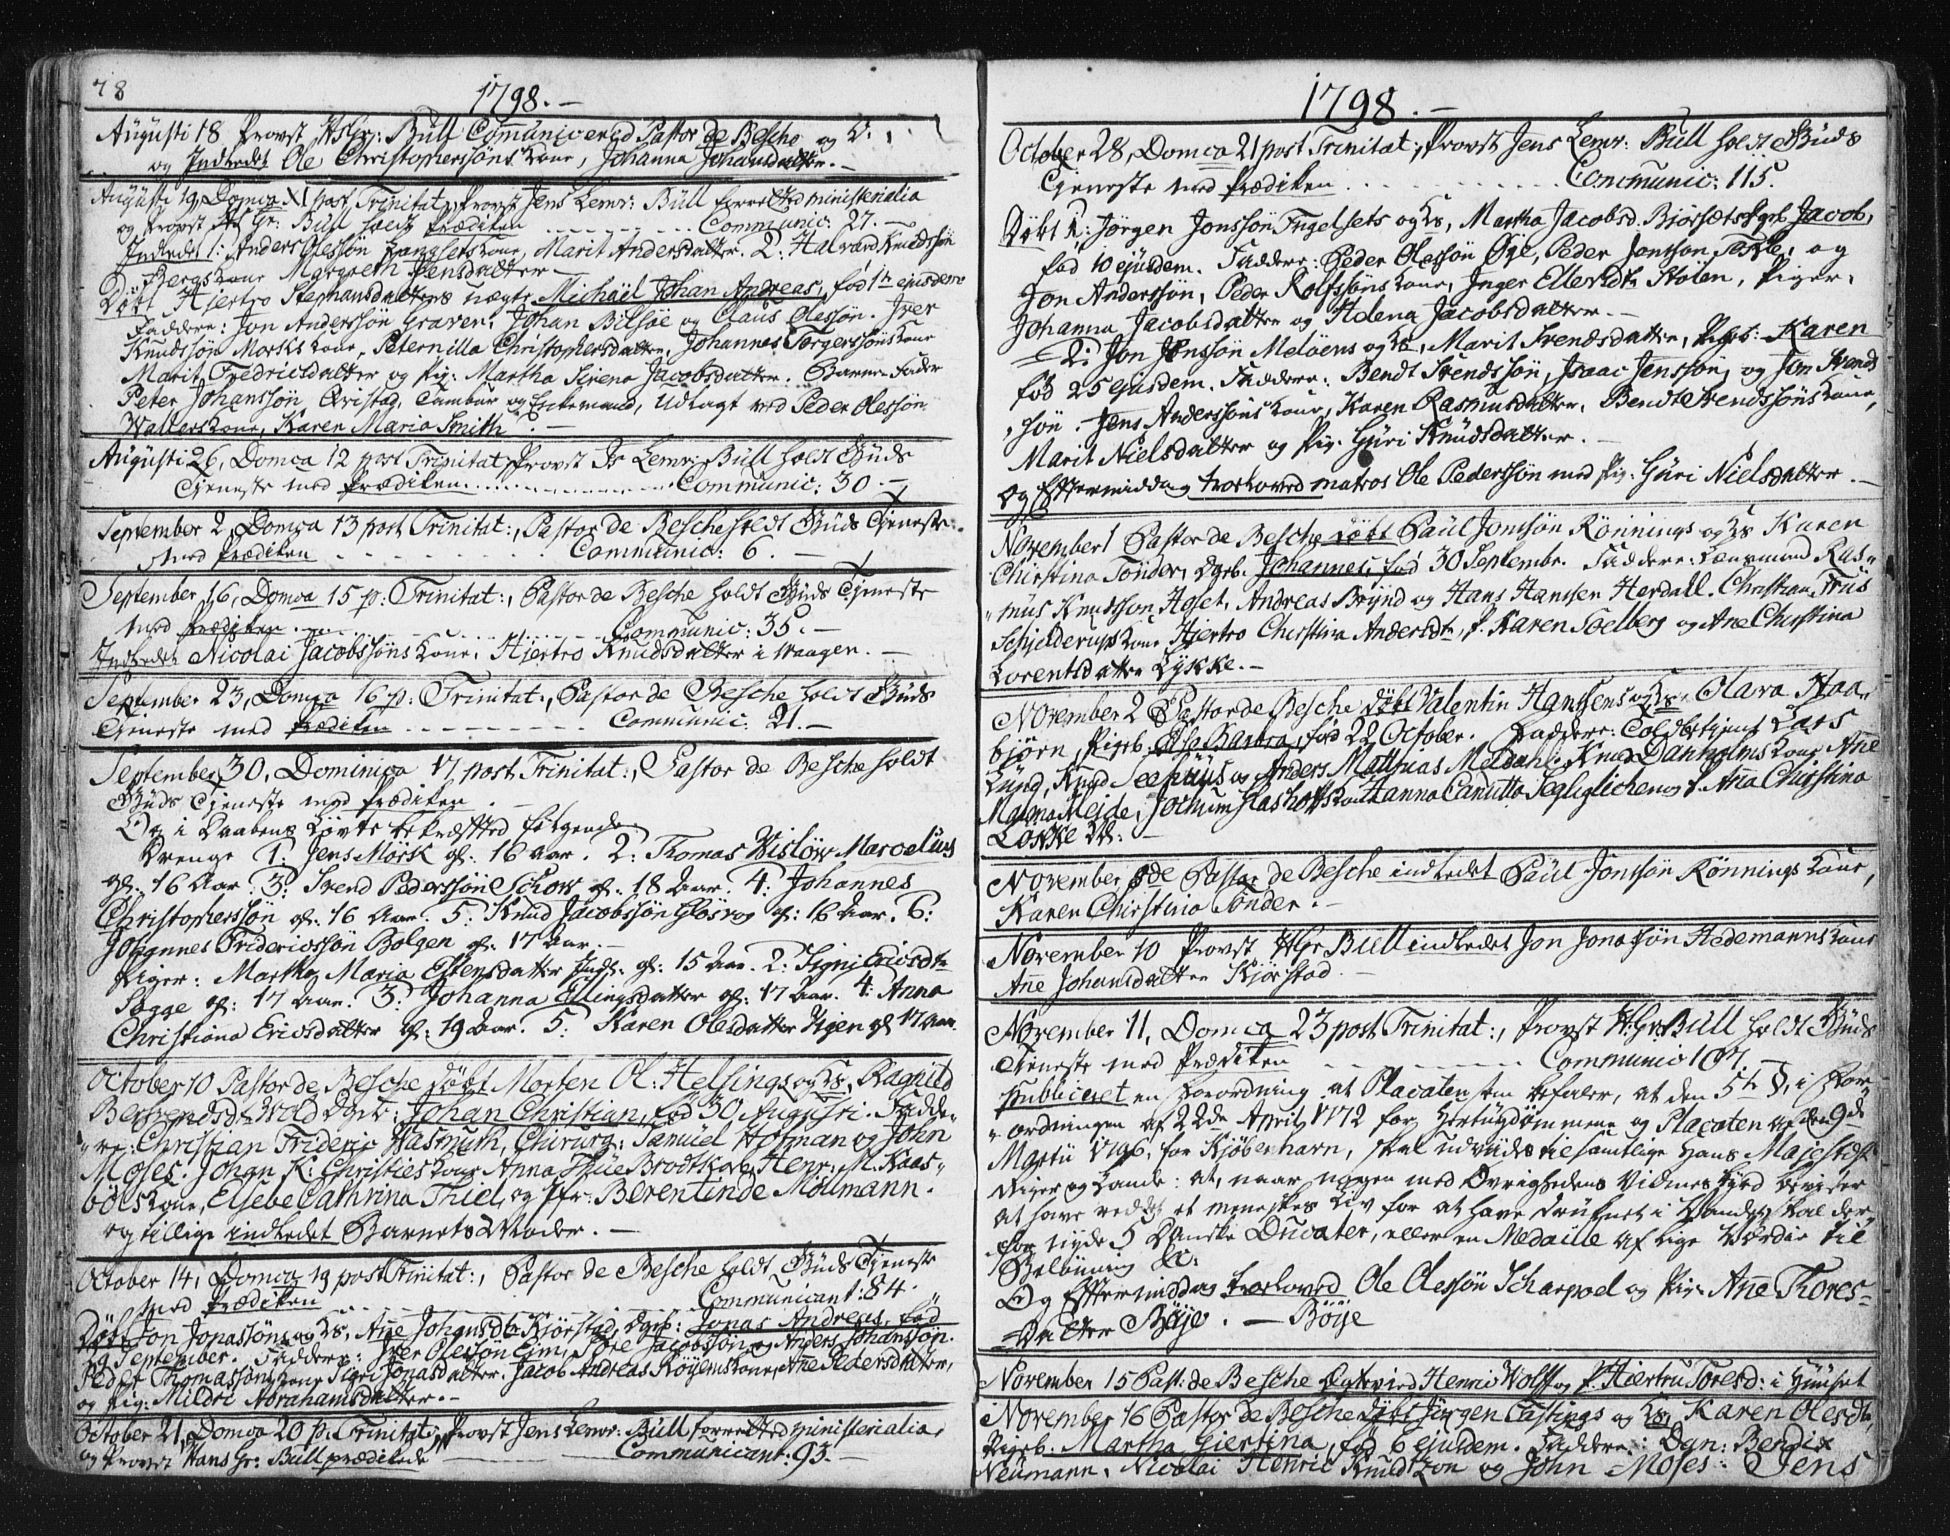 78
1798.-
Augusti 18 Provst Hs Gr: Bull Communicered Pastor de Besche og
og Indledet Ole Christopherssöns Kone, Johanna Johansdatter.-
Augusti 19, Domca XI post Trinitat: Provst Jens Lemv: Bull forretted ministerialia
og Provst Hs Gr: Bull holdt Prædiken ---------- Communic: 27.-
Indledet 1: Anders Olessön Kone, Marit Andersdatter. 2: Halvard Knudssön
Bergs Kone Margreth Jensdatter -
Döbt Hjertro Stephansdatters uægte Michaël Johan Andreas, föd 1te ejusdem
Faddere: Jon Anderssön Graver, Johan Bilsöe og Claus Olessön. Iver
Knudssön Morsks Kone, Peternilla Christophersdatter, Johannes Torgerssöns Kone
Marit Fredricsdatter og Pig: Martha Sirena Jacobsdatter. Barne-Fader
Peter Johanssön Qvistad, Tambur og Enkemand, Udlagt ved Peder Olessön
Wallers Kone, Karen Maria Smith.-
Augusti 26, Domca 12 post Trinitat: Provst Js Lemv: Bull holdt Guds
Tjeneste med Prædiken .......... Communic: 30.-
September 2, Domca 13 post Trinitat:, Pastor de Besche holdt Guds Tjeneste
med Prædiken ---------- Communic: 6.-
September 16, Domca 15 p: Trinitat:, Pastor de Besche holdt Guds Tjeneste
med Prædiken ---------- Communic: 35.-
Indledet Nicolai Jacobssöns Kone, Hjertro Knudsdatter i Waagen.-
September 23, Domca 16 p: Trinitat:, Pastor de Besche holdt Guds
Tjeneste med Prædiken ---------- Communic: 21.-
September 30, Dominica 17 post Trinitat:, Pastor de Besche holdt
Guds Tjeneste med Prædiken.-
Og i Daabens Lövte bekræftted fölgende
Drenge 1: Jens Mörk gl: 16 aar. 2: Thomas Wislöw Marcelius
gl: 16 Aar. 3: Svend Pederssön Schow gl: 18 Aar. 4: Johannes
Christopherssön gl: 16 Aar. 5: Knud Jacobssön Glösvog gl: 16 Aar. 6:
Johannes Fridericssön Bolgen gl: 17 Aar.-
Piger: Martha Maria Estensdatter gl: 15 Aar. 2: Signi Ericsdtr
Sogge gl: 17 Aar. 3: Johanna Ellingsdatter gl: 17 Aar. 4: Anna
Christiana Ericsdatter gl: 19 Aar. 5: Karen Olesdatter gl 17 Aar.
October 10 Pastor de Besche döbt Morten Ol: Helsings og Hs, Ragnild
Berhendsd: Wold Dgeb: Johan Christian, föd 30 Augusti. Fadde-
-re: Christian Frideric Wasmuth, Chirurg: Samuel Hofman og John
Moses. Johan K: Christies Kone Anna Thue Brodtkorb, Henr: M: Kaas-
böls Kone, Elsebe Cathrina Thiel, og Jfr: Berentinde Möllmann.
og tillige indledet Barnets Moder.-
October 14, Domca 19 post Trinitat:, Pastor de Besche holdt Guds Tjeneste
med Prædiken ---------- Communicant: 84.
Döbt Jon Jonassöns og Hs, Anne Johansdtr Kjörstad, Dgeb: Jonas Andreas, föd
19 September. Faddere: Iver Olessön Eim, Tore Jacobssön og Anders Johanssön.
Peder Thomassöns Kone Sigri Jonasdatter. Jacob Andreas Röyems Kone, Anne Pedersdatter,
og Pig: Mildri Abrahamsdatter.-
October 21, Domca 20 p: Trinitat:, Provst Jens Lemv: Bull forretted ministerialia,
og Provst Hans Gr: Bull prædikede ---------- Communicant: 93.-
1798.-
October 28, Domca 21 post Trinitat:, Provst Jens Lemv: Bull holdt Guds
Tjeneste med Prædiken .......... Communic: 115.
Döbt 1: Jörgen Jonssön Fugelsets og Hs, Martha Jacobsd: Bjorsæts Dgeb: Jacob,
föd 10 ejusdem. Faddere: Peder Olessön Öye, Peder Jontson, og
Jon Anderssön, Peder Rolfssöns Kone, Inger Ellevsdtr Stölen, Piger,
Johanna Jacobsdatter og Helena Jacobsdatter.-
- 2: Jon Jonssön Melöens og Hs, Marit Svendsdatter, Pgb: Karen
föd 25 ejusdem. Faddere: Bendt Svendssön, Isaac Jenssön, og Jon Svends
sön. Jens Anderssöns Kone, Karen Rasmusdatter, Bendt Svendssöns Kone,
Marit Nielsdatter og Pig: Guri Knudsdatter.-
Og Eftermiddag troloved matros Ole Pederssön med Pig: Guri Nielsdatter.-
November 1 Pastor de Besche döbt Paul Jontsön Rönnings og Hs Karen
Christina Tönder, Dgeb: Johannes, föd 30 Septembr. Faddere: Lænsmand Ras-
-mus Knudsson Hoset, Andreas Brynd og Hans Hansen Herdall. Christian Friis
Schjelderups Kone Hjertro Christina Andersdtr, P. Karen Soelberg og Ane Christina
Lorentsdatter Lykke.-
November 2 Pastor de Besche döbt Valentin Hansens og Hs, Olava Haa-
björn, Pigeb: Else Barbra, föd 22 October. Faddere: Toldbetjent Lars
Lund, Knud Seehuus og Anders Matthias Meldahl. Knud Danholms Kone Ane
Malena Meide, Jochum Hashoffs Kone Hanna Canutta Segliglichen og P. Anna Christina
Lökke W:
November 8de Pastor de Besche indledet Paul Jontsön Rönnings Kone,
Karen Christina Tönder.-
November 10 Provst H Gr Bull indledet Jon Jonassön Hedemanns Kone
Ane Johansdatter Kjörstad.-
November 11, Domca 23 post Trinitat:, Provst H: Gr: Bull holdt Guds
Tjeneste med Prædiken ---------- Communic 107.-
Publiceret en Forordning at Placaten som befaler, at den 5te §, i For-
-ordningen af 22de April 1772 for Hertugdömmene og Placaten af den 9de
Martii 1796, for Kjöbenhavn, skal udvides til samtlige Hans Majestæts
Riger og Lande: at, naar nogen med Övrighedens Vidnesbyrd beviser
at have reddet et meneskes Liv for at have druknet i Vandet, skal der-
for nyde 5 Danske Ducater, eller en Medaille af lige Værdie til
Belönning &c.
Og Eftermiddag troloved Ole Olessön Scharpoel og Pig: Ane Thores-
-Datter Böye. - Böye
November 15 Past: de Besche Egtevied Henric Wolff og P. Hiertru Toresd: i Huuset
November 16 Pastor de Besche döbt Jurgen Castings og Hs, Karen Olesdtr,
Pigeb: Martha Giertina, föd 6 ejusdem. Faddere: Dan: Bendix
Neumann, Nicolai Henric Knudtzon og John Moses: Jens